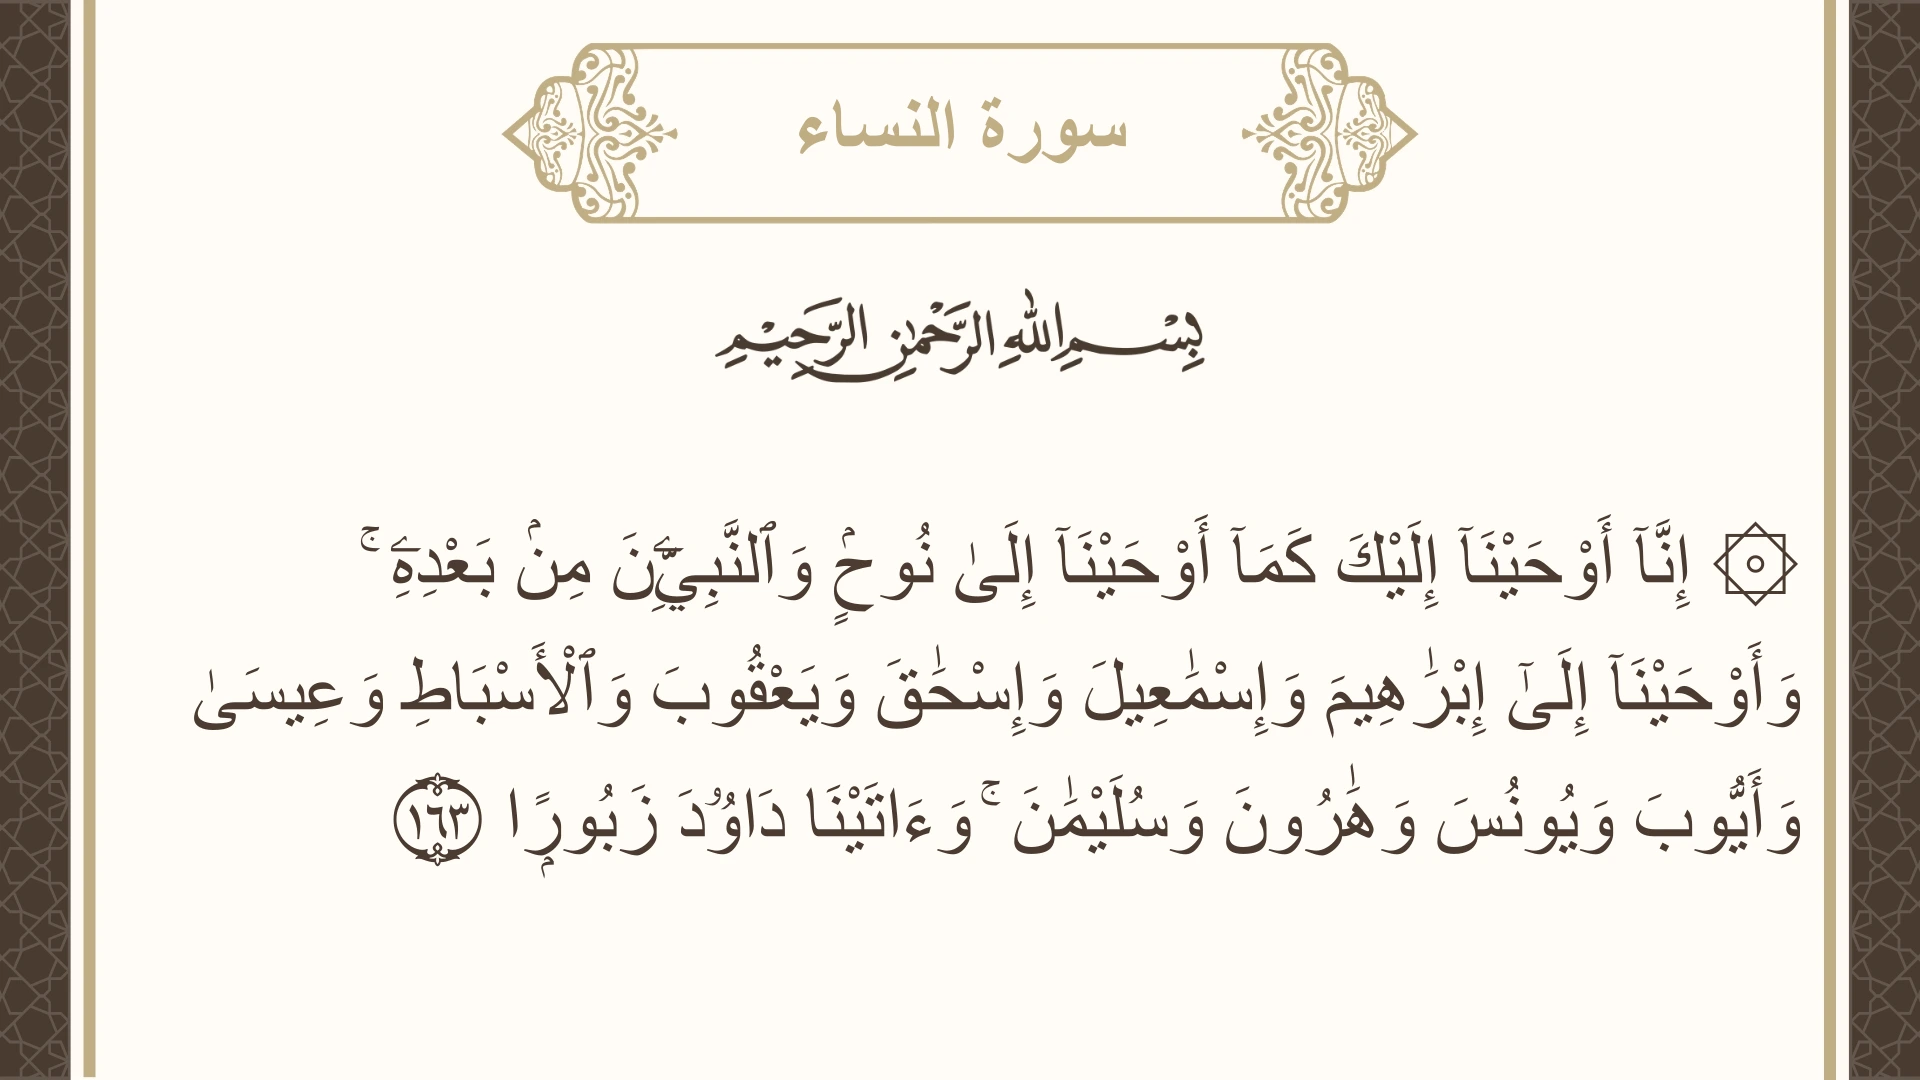 سورة النساء
بِسْمِ اللهِ الرَّحْمٰنِ الرَّحِيْمِ
۞ إِنَّآ أَوْحَيْنَآ إِلَيْكَ كَمَآ أَوْحَيْنَآ إِلَىٰ نُوحٍۢ وَٱلنَّبِيِّـۧنَ مِنۢ بَعْدِهِۦ ۚ
وَأَوْحَيْنَآ إِلَىٰٓ إِبْرَٰهِيمَ وَإِسْمَـٰعِيلَ وَإِسْحَـٰقَ وَيَعْقُوبَ وَٱلْأَسْبَاطِ وَعِيسَىٰ
وَأَيُّوبَ وَيُونُسَ وَهَـٰرُونَ وَسُلَيْمَـٰنَ ۚ وَءَاتَيْنَا دَاوُۥدَ زَبُورًۭا ١٦٣